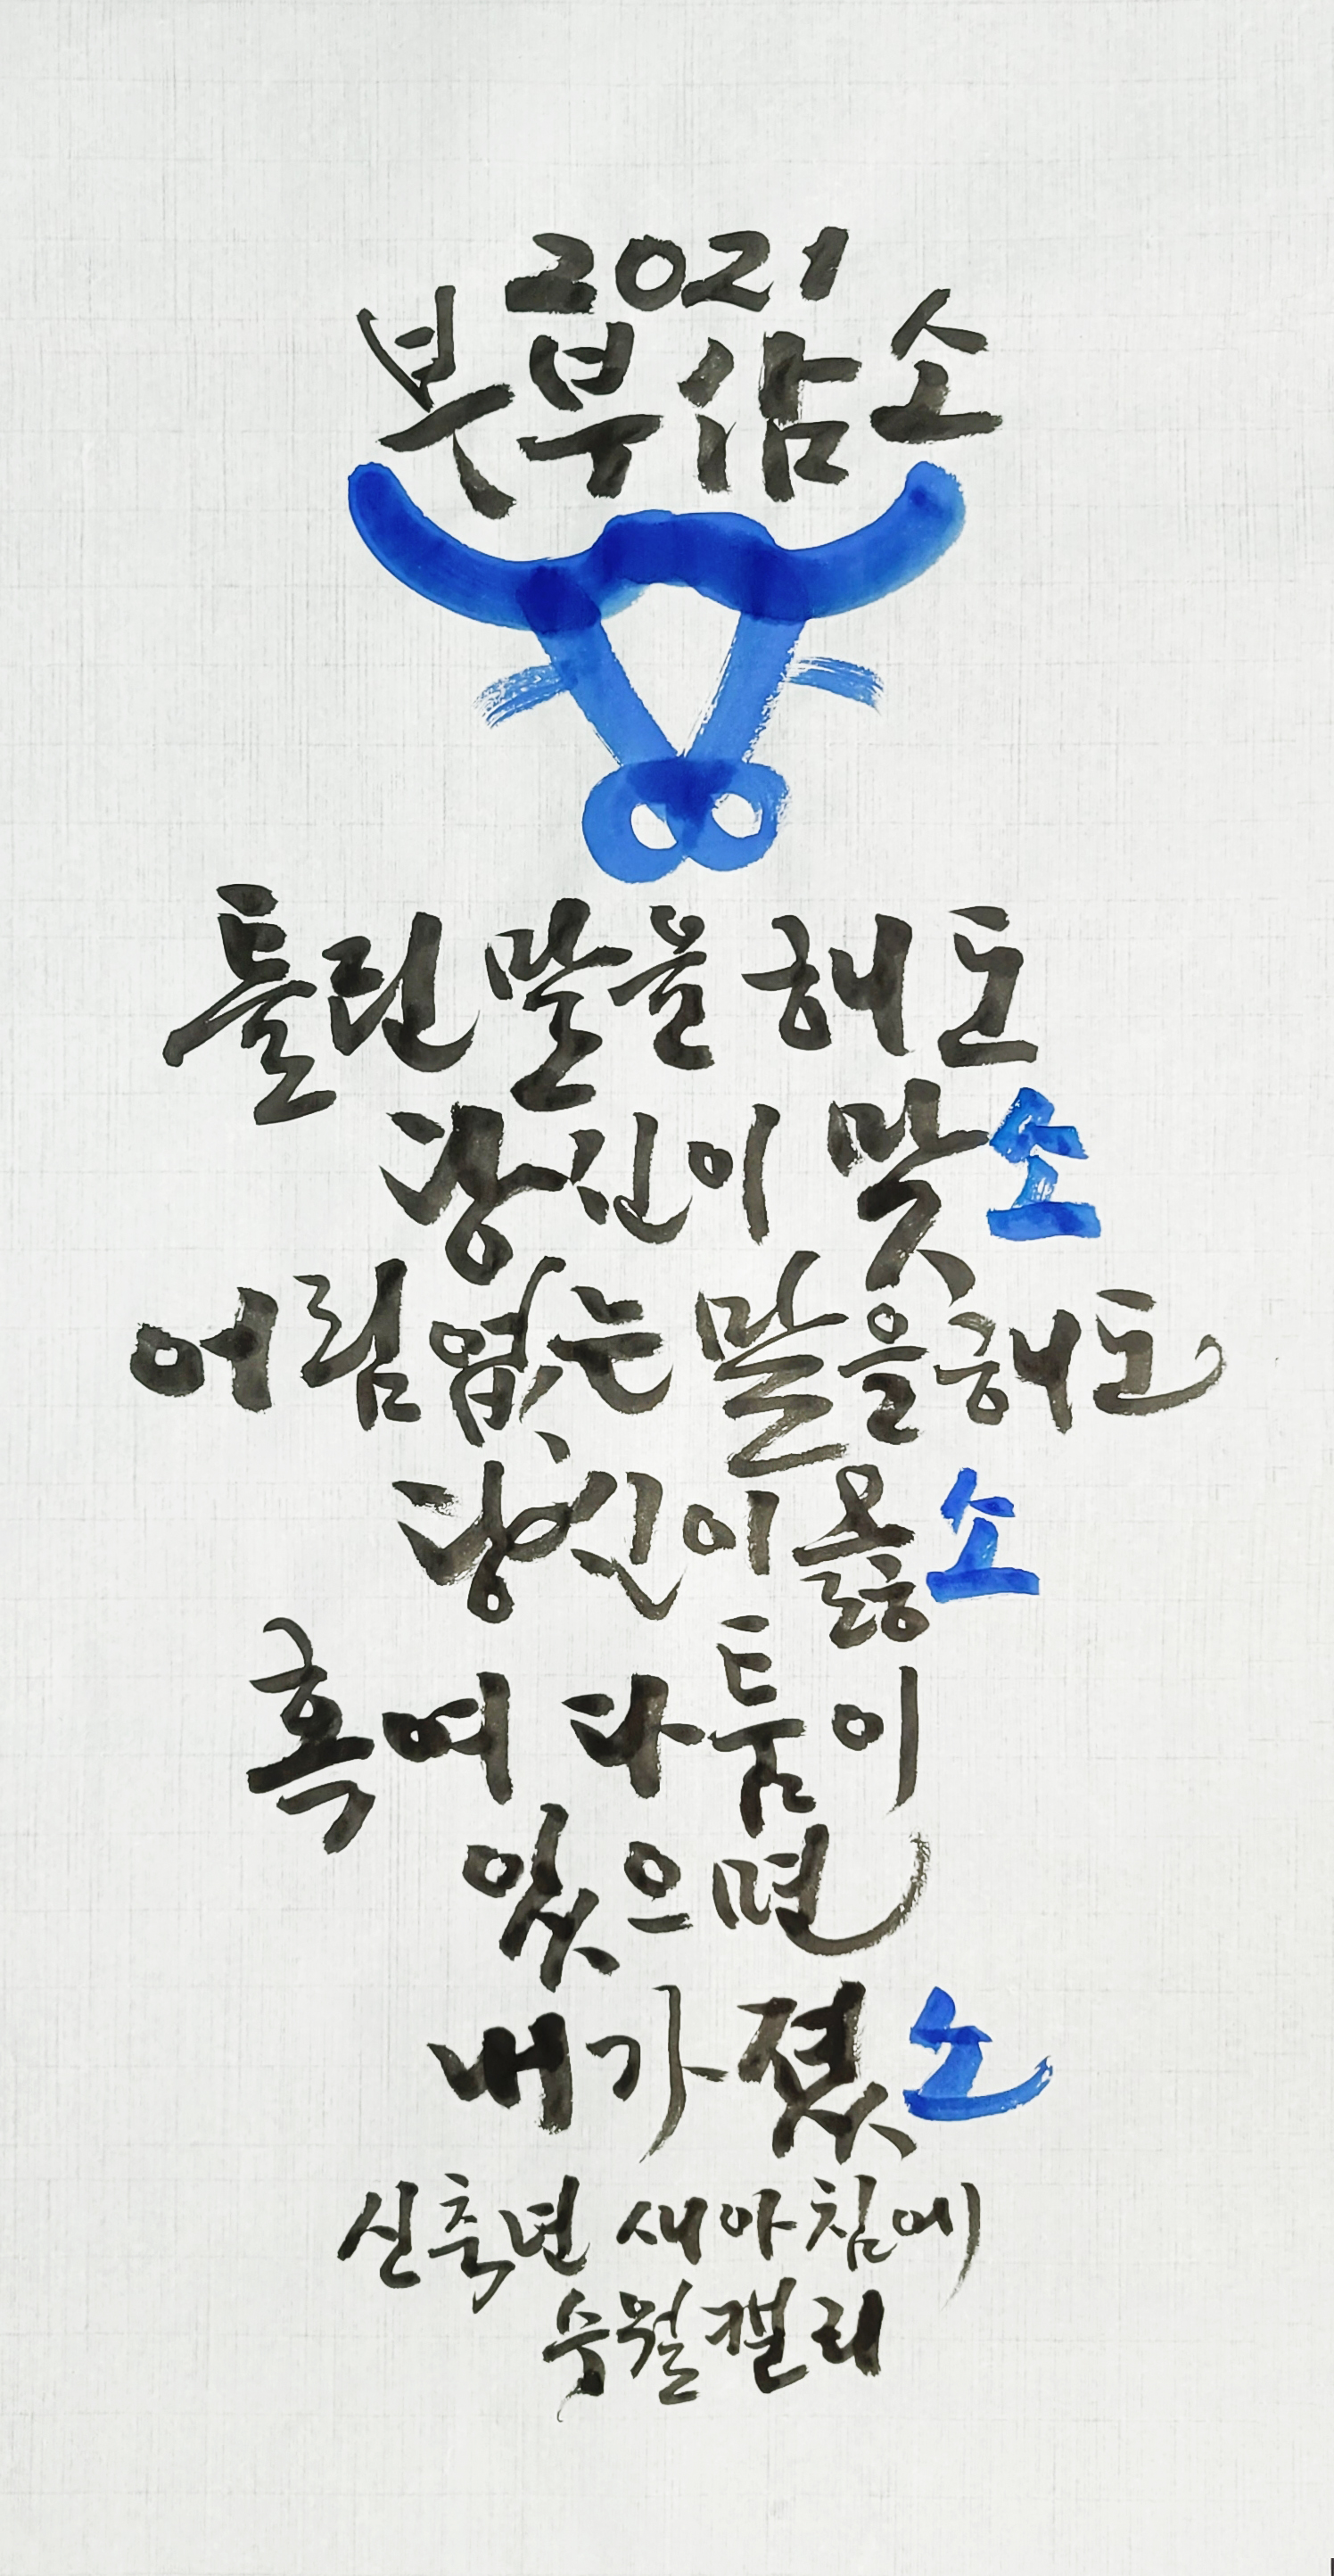 2021
부부싸소
틀린 말을 해도
당신이 맞소
어림없는 말을해도
당신이 옳소
혹여 다툼이
있으면
내가 졌소
신축년 새아침에
수월캘리